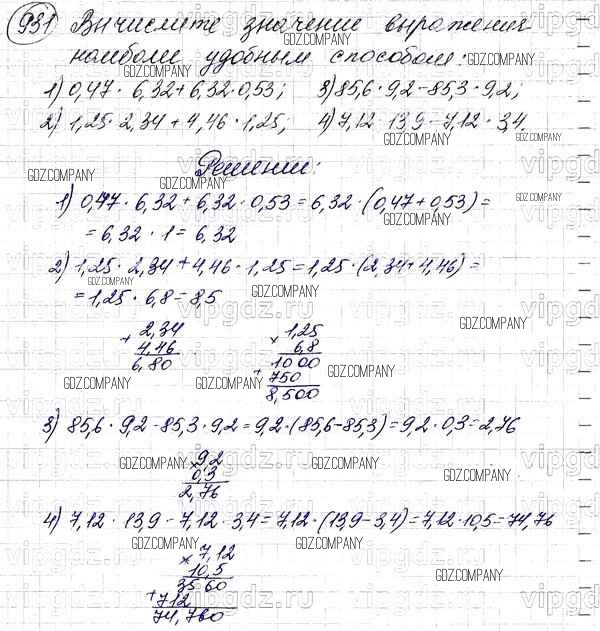 931 Вычислите значение выражения
наиболее удобным способом:
1) 0,47 · 6,32 + 6,32 · 0,53; 3) 85,6 · 9,2 - 85,3 · 9,2;
2) 1,25 · 2,34 + 4,46 · 1,25; 4) 7,12 · 13,9 - 7,12 · 3,4.
Решение:
1) 0,47 · 6,32 + 6,32 · 0,53 = 6,32 · (0,47 + 0,53) =
= 6,32 · 1 = 6,32
2) 1,25 · 2,34 + 4,46 · 1,25 = 1,25 · (2,34 + 4,46) =
= 1,25 · 6,8 = 8,5
2,34 × 1,25
+ 4,46 6,8
6,80 1000
+ 750
8,500
3) 85,6 · 9,2 - 85,3 · 9,2 = 9,2 · (85,6 - 85,3) = 9,2 · 0,3 = 2,76
× 9,2
0,3
2,76
4) 7,12 · 13,9 - 7,12 · 3,4 = 7,12 · (13,9 - 3,4) = 7,12 · 10,5 = 74,76
× 7,12
10,5
3560
+ 712
74,760
GDZ.COMPANY
vipgdz.ru